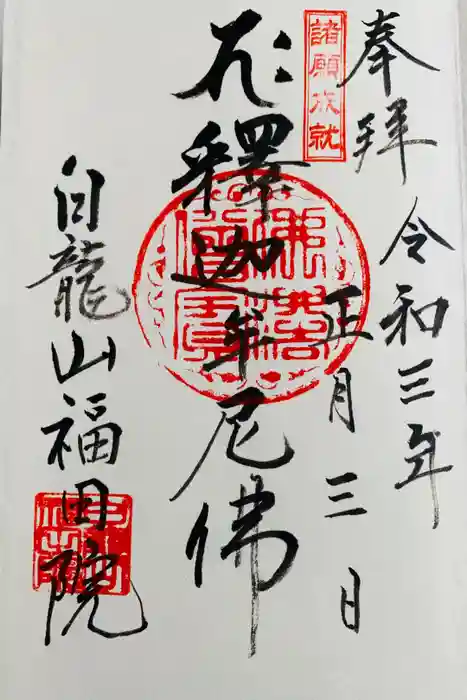 奉拝
令和三年
正月三日
諸願成就
釋迦牟尼佛
佛法
僧寶
白龍山福田院